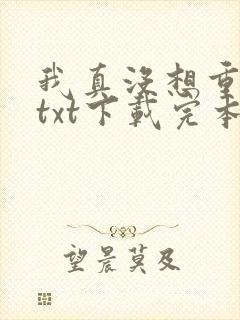 我真没想重
txt下载完本
望晨莫及